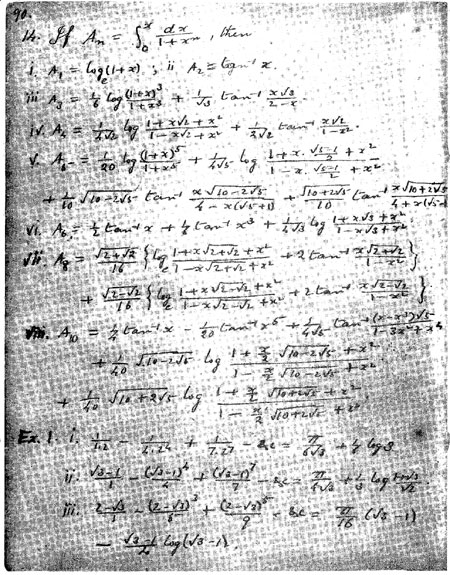 90.
14. If Aₙ = ∫₀ˣ dx/(1+xⁿ), then
i. A₁ = logₑ(1+x) ; ii A₂ = tan⁻¹ x.
iii A₃ = 1/6 log (1+x)³/(1+x³) + 1/√3 tan⁻¹ x√3/(2-x)
iv. A₄ = 1/(4√2) log (1+x√2+x²)/(1-x√2+x²) + 1/(2√2) tan⁻¹ x√2/(1-x²).
v. A₅ = 1/20 log (1+x)⁵/(1+x⁵) + 1/(4√5) log (1+x·(√5-1)/2+x²)/(1-x·(√5+1)/2+x²)
+ 1/10 √(10-2√5) tan⁻¹ x√(10-2√5)/(4-x(√5+1)) + √(10+2√5)/10 tan⁻¹ x√(10+2√5)/(4+x(√5-1))
vi. A₆ = 1/2 tan⁻¹ x + 1/6 tan⁻¹ x³ + 1/(4√3) log (1+x√3+x²)/(1-x√3+x²)
vii A₈ = √(2+√2)/16 {logₑ (1+x√(2+√2)+x²)/(1-x√(2+√2)+x²) + 2 tan⁻¹ x√(2+√2)/(1-x²)}
+ √(2-√2)/16 {log (1+x√(2-√2)+x²)/(1-x√(2-√2)+x²) + 2 tan⁻¹ x√(2-√2)/(1-x²)}
viii. A₁₀ = 1/4 tan⁻¹ x - 1/20 tan⁻¹ x⁵ + 1/(4√5) tan⁻¹ (x-x³)√5/(1-3x²+x⁴)
+ 1/40 √(10-2√5) log (1+x/2 √(10-2√5)+x²)/(1-x/2 √(10-2√5)+x²)
+ 1/40 √(10+2√5) log (1+x/2 √(10+2√5)+x²)/(1-x/2 √(10+2√5)+x²)
Ex. 1. i. 1/1.2 - 1/4.2⁴ + 1/7.2⁷ - &c = π/(6√3) + 1/6 log 3
ii. (√3-1)/1 - (√3-1)⁴/4 + (√3-1)⁷/7 - &c = π/(6√3) + 1/3 log (1+√3)/√2.
iii. (2-√3)/1 - (2-√3)³/5 + (2-√3)⁵/9 - &c = π/16 (√3-1)
- (√3-1)/4 log(√3-1).